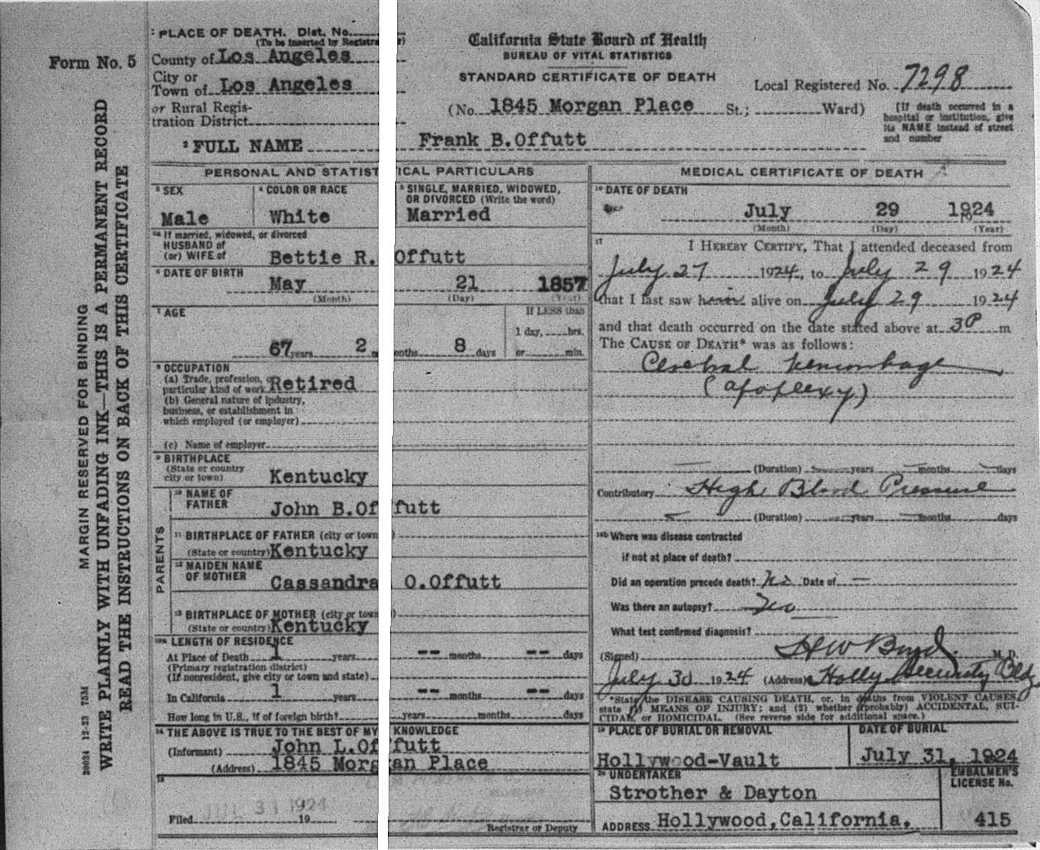 Form No. 5
MARGIN RESERVED FOR BINDING
WRITE PLAINLY WITH UNFADING INK—THIS IS A PERMANENT RECORD
READ THE INSTRUCTIONS ON BACK OF THIS CERTIFICATE
PLACE OF DEATH. Dist. No.
(To be inserted by Registrar)
County of Los Angeles
City or
Town of Los Angeles
or Rural Regis-
tration District
California State Board of Health
BUREAU OF VITAL STATISTICS
STANDARD CERTIFICATE OF DEATH
Local Registered No. 7298
(No. 1845 Morgan Place St.; Ward)
[If death occurred in a
hospital or institution, give
its NAME instead of street
and number
2 FULL NAME Frank B.Offutt
PERSONAL AND STATISTICAL PARTICULARS
3 SEX
Male
4 COLOR OR RACE
White
5 SINGLE, MARRIED, WIDOWED,
OR DIVORCED (Write the word)
Married
5a If married, widowed, or divorced
HUSBAND of
(or) WIFE of Bettie R. Offutt
6 DATE OF BIRTH
May 21 1857
(Month) (Day) (Year)
7 AGE
If LESS than
1 day, hrs.
67 years 2 months 8 days or min.
8 OCCUPATION
(a) Trade, profession, or
particular kind of work Retired
(b) General nature of industry,
business, or establishment in
which employed (or employer)
(c) Name of employer
9 BIRTHPLACE
(State or country
city or town) Kentucky
PARENTS
10 NAME OF
FATHER John B.Offutt
11 BIRTHPLACE OF FATHER (city or town
(State or country) Kentucky
12 MAIDEN NAME
OF MOTHER Cassandra O.Offutt
13 BIRTHPLACE OF MOTHER (city or town
(State or country) Kentucky
LENGTH OF RESIDENCE
At Place of Death 1 years -- months -- days
(Primary registration district)
(If nonresident, give city or town and state)
In California 1 years -- months -- days
How long in U.S., if of foreign birth? years months days
14 THE ABOVE IS TRUE TO THE BEST OF MY KNOWLEDGE
(Informant) John L.Offutt
(Address) 1845 Morgan Place
15
JUL 31 1924
Filed 19
Registrar or Deputy
MEDICAL CERTIFICATE OF DEATH
16 DATE OF DEATH
July 29 1924
(Month) (Day) (Year)
17 I HEREBY CERTIFY, That I attended deceased from
July 27 1924, to July 29 1924
that I last saw him alive on July 29 1924
and that death occurred on the date stated above at 3P m
The CAUSE OF DEATH* was as follows:
Cerebral hemorrhage
(apoplexy)
(Duration) years months days
Contributory High Blood Pressure
(Duration) years months days
18 Where was disease contracted
if not at place of death?
Did an operation precede death? No Date of —
Was there an autopsy? No
What test confirmed diagnosis?
(Signed) M. D.
July 30 1924 (Address) Holly Security Bldg
*State the DISEASE CAUSING DEATH, or, in deaths from VIOLENT CAUSES,
state (1) MEANS OF INJURY; and (2) whether (probably) ACCIDENTAL, SUI-
CIDAL, or HOMICIDAL. (See reverse side for additional space.)
19 PLACE OF BURIAL OR REMOVAL
Hollywood-Vault
DATE OF BURIAL
July 31, 1924
20 UNDERTAKER
Strother & Dayton
ADDRESS Hollywood,California,
EMBALMER'S
LICENSE No.
415